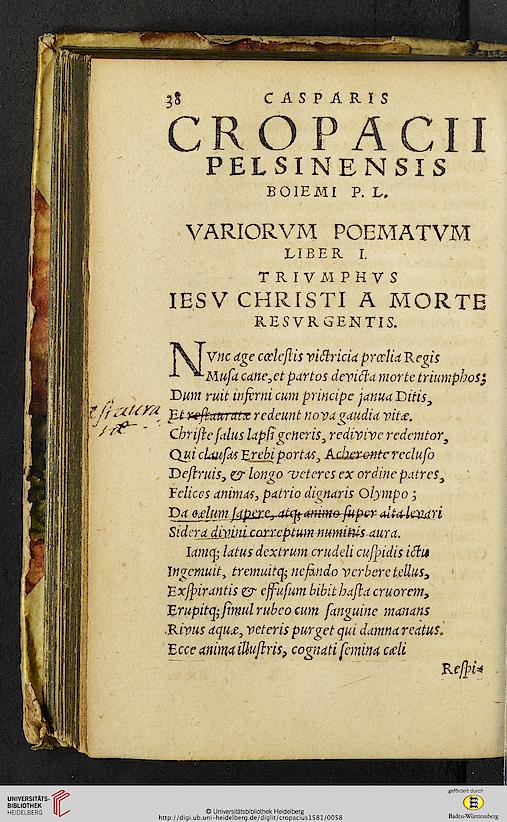 38 CASPARIS
CROPACII
PELSINENSIS
BOIEMI P. L.
VARIORVM POEMATVM
LIBER I.
TRIVMPHVS
IESV CHRISTI A MORTE
RESVRGENTIS.
NVnc age cœlestis victricia prœlia Regis
Musa cane, et partos devicta morte triumphos;
Dum ruit inferni cum principe janua Ditis,
Et restauratæ redeunt nova gaudia vitæ.
Christe salus lapsi generis, redivive redemtor,
Qui clausas Erebi portas, Acheronte recluso
Destruis, & longo veteres ex ordine patres,
Felices animas, patrio dignaris Olympo;
Da cælum sapere, atq; animo super alta levari
Sidera divini correptum numinis aura.
Iamq; latus dextrum crudeli cuspidis ictu
Ingemuit, tremuitq; nefando verbere tellus,
Exspirantis & effusum bibit hasta cruorem,
Erupitq; simul rubeo cum sanguine manans
Rivus aquæ, veteris purget qui damna reatus.
Ecce anima illustris, cognati semina cæli
Respi-
UNIVERSITÄTS-
BIBLIOTHEK
HEIDELBERG
© Universitätsbibliothek Heidelberg
http://digi.ub.uni-heidelberg.de/diglit/cropacius1581/0058
gefördert durch
Baden-Württemberg